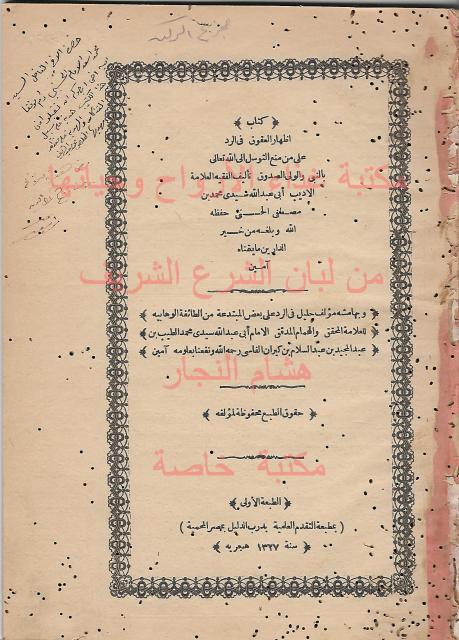 ﴿ كتاب ﴾
اظهار العقوق فى الرد
على من منع التوسل الى الله تعالى
بالنبى والولى الصدوق تأليف الفقيه العلامة
الاديب أبى عبد الله شيدى محمد بن
مصطفى الحسنى حفظه
الله وبلغه من خير
الدارين ما يتمناه
آمين
مكتبة غذاء الأرواح وحياتها
من لبان الشرع الشريف
﴿ وبهامشه مؤلف جليل فى الرد على بعض المبتدعة من الطائفة الوهابيه ﴾
﴿ للعلامة المحقق والهمام المدقق الامام أبى عبد الله سيدى محمد الطيب بن ﴾
﴿ عبد المجيد بن عبد السلام بن كيران الفاسى رحمه الله ونفعنا بعلومه آمين ﴾
هشام النجار
﴿ حقوق الطبع محفوظة لمؤلفه ﴾
مكتبة خاصة
﴿ الطبعة الأولى ﴾
( بمطبعة التقدم العلمية بدرب الدليل بمصر المحمية )
﴿ سنة ١٣٢٧ هجريه ﴾